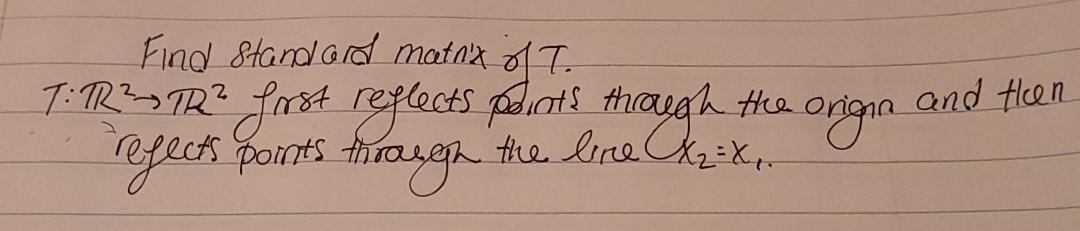 Find standard matrix of T.
T: ℝ² → ℝ² first reflects points through the origin and then
refects points through the line x₂ = x₁.